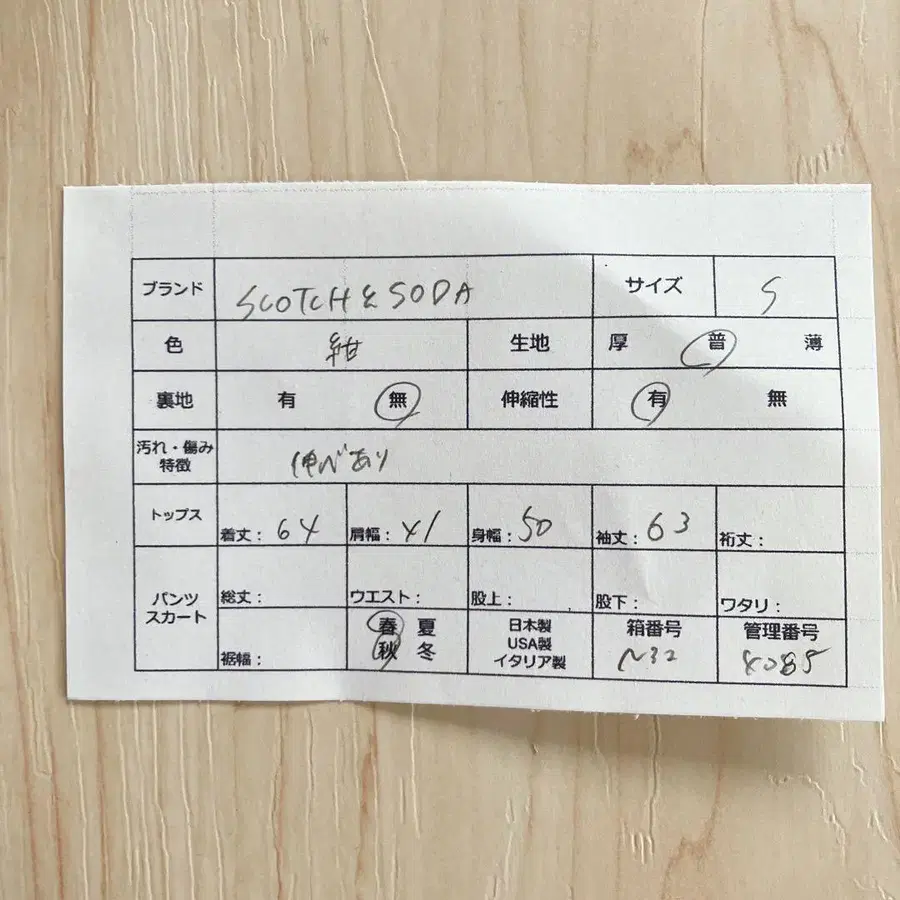 ブランド SCOTCH & SODA サイズ S
色 紺 生地 厚 普 薄
裏地 有 無 伸縮性 有 無
汚れ・傷み
特徴 伸べあり
トップス 着丈: 64 肩幅: 41 身幅: 50 袖丈: 63 裄丈:
パンツ
スカート 総丈: ウエスト: 股上: 股下: ワタリ:
裾幅: 春 夏
秋 冬
日本製
USA製
イタリア製
箱番号
N32
管理番号
4085